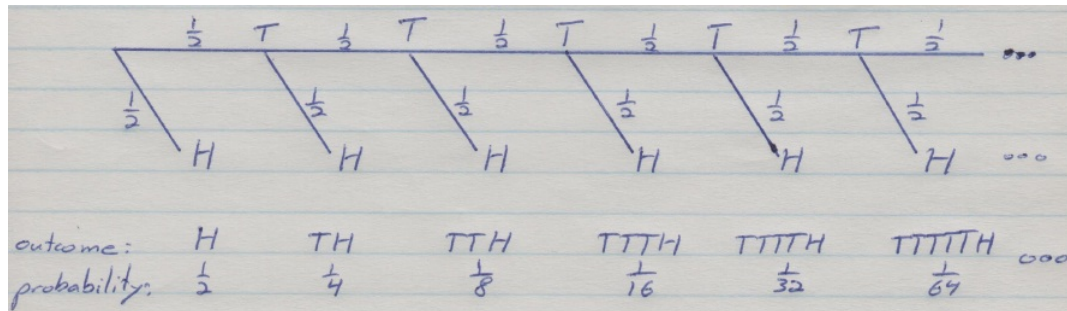 ½ T ½ T ½ T ½ T ½ T ½
...
½ ½ ½ ½ ½ ½
H H H H H H ...
outcome: H TH TTH TTTH TTTTH TTTTTH ...
probability: 1/2 1/4 1/8 1/16 1/32 1/64